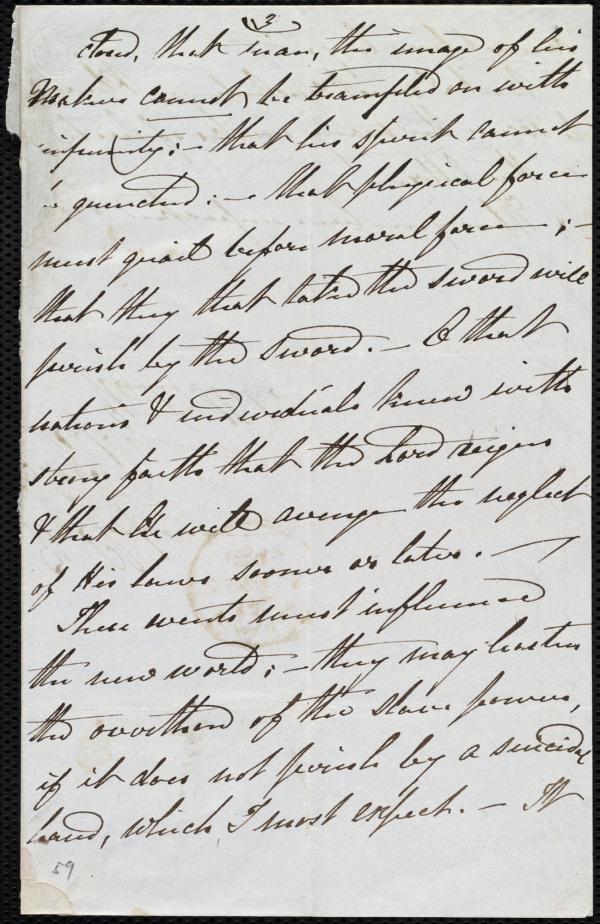 3
that man, the image of his
Maker cannot be trampled on with
impunity; – that his spirit cannot
be quenched: – that physical force
must quail before moral force – ; –
that they that take the sword will
perish by the sword. – O that
nations & individuals knew with
strong faith that the Lord reigns
& that He will avenge the neglect
of His laws sooner or later. –
These events must influence
the new world; – they may hasten
the overthrow of the slave power,
if it does not perish by a suicidal
hand, which I most expect. – It
59